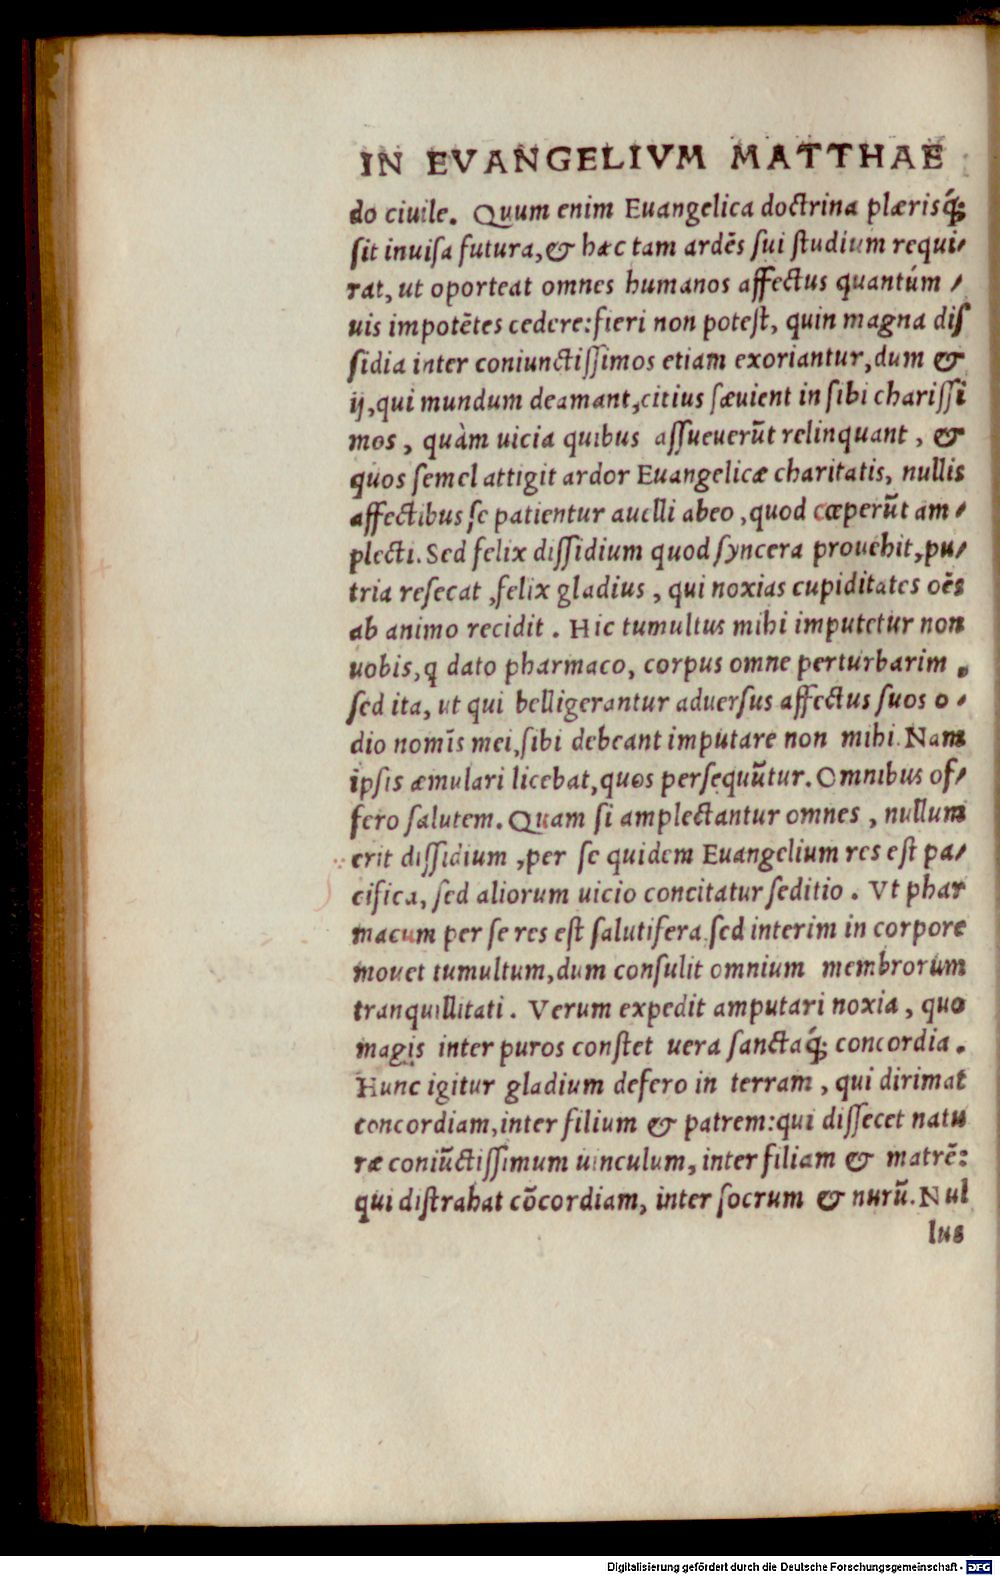 IN EVANGELIVM MATTHAE
do ciuile. Quum enim Euangelica doctrina plærisq́;
sit inuisa futura, & hæc tam ardẽs sui studium requi-
rat, ut oporteat omnes humanos affectus quantúm-
uis impotẽtes cedere: fieri non potest, quin magna dis
sidia inter coniunctissimos etiam exoriantur, dum &
ij, qui mundum deamant, citius sæuient in sibi charissi
mos, quàm uicia quibus assueuerũt relinquant, &
quos semel attigit ardor Euangelicæ charitatis, nullis
affectibus se patientur auelli abeo, quod cœperũt am-
plecti. Sed felix dissidium quod syncera prouehit, pu-
tria resecat, felix gladius, qui noxias cupiditates oẽs
ab animo recidit. Hic tumultus mihi imputetur non
uobis, q dato pharmaco, corpus omne perturbarim.
sed ita, ut qui belligerantur aduersus affectus suos o-
dio nomĩs mei, sibi debeant imputare non mihi. Nam
ipsis æmulari licebat, quos persequũtur. Omnibus of-
fero salutem. Quam si amplectantur omnes, nullum
erit dissidium, per se quidem Euangelium res est pa-
cifica, sed aliorum uicio concitatur seditio. Vt phar
macum per se res est salutifera, sed interim in corpore
mouet tumultum, dum consulit omnium membrorum
tranquillitati. Verum expedit amputari noxia, quo
magis inter puros constet uera sanctaq́; concordia.
Hunc igitur gladium defero in terram, qui dirimat
concordiam, inter filium & patrem: qui dissecet natu
ræ coniũctissimum uinculum, inter filiam & matrẽ:
qui distrahat cõcordiam, inter socrum & nurũ. Nul
lus
Digitalisierung gefördert durch die Deutsche Forschungsgemeinschaft - DFG